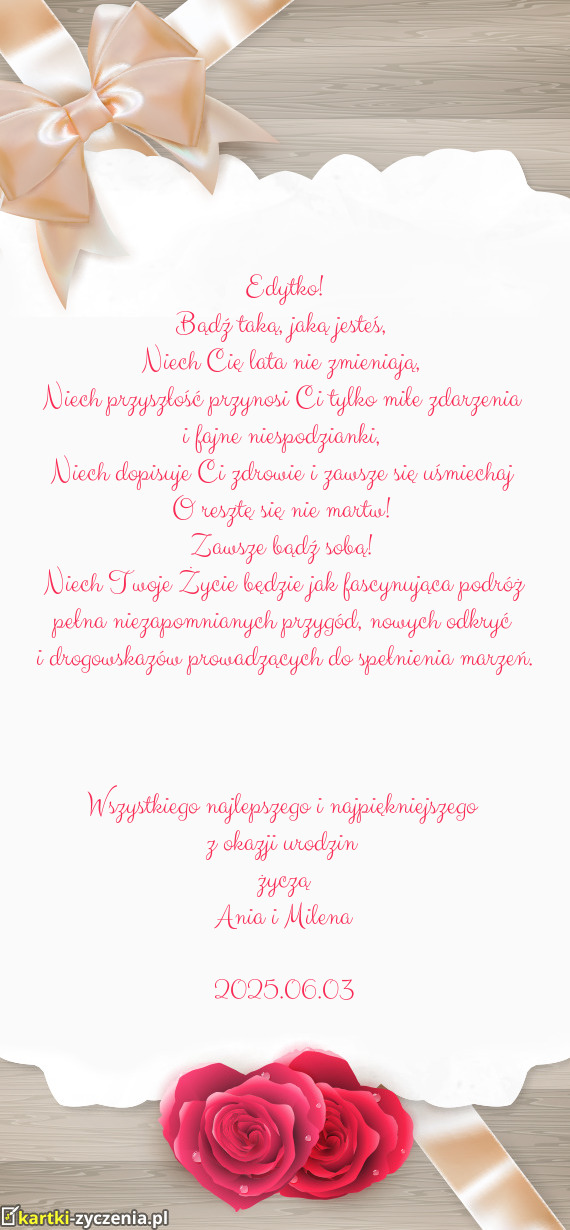 Edytko!
Bądź taką, jaką jesteś,
Niech Cię lata nie zmieniają,
Niech przyszłość przynosi Ci tylko miłe zdarzenia
i fajne niespodzianki,
Niech dopisuje Ci zdrowie i zawsze się uśmiechaj
O resztę się nie martw!
Zawsze bądź sobą!
Niech Twoje Życie będzie jak fascynująca podróż
pełna niezapomnianych przygód, nowych odkryć
i drogowskazów prowadzących do spełnienia marzeń.
Wszystkiego najlepszego i najpiękniejszego
z okazji urodzin
życzą
Ania i Milena
2025.06.03
kartki-zyczenia.pl